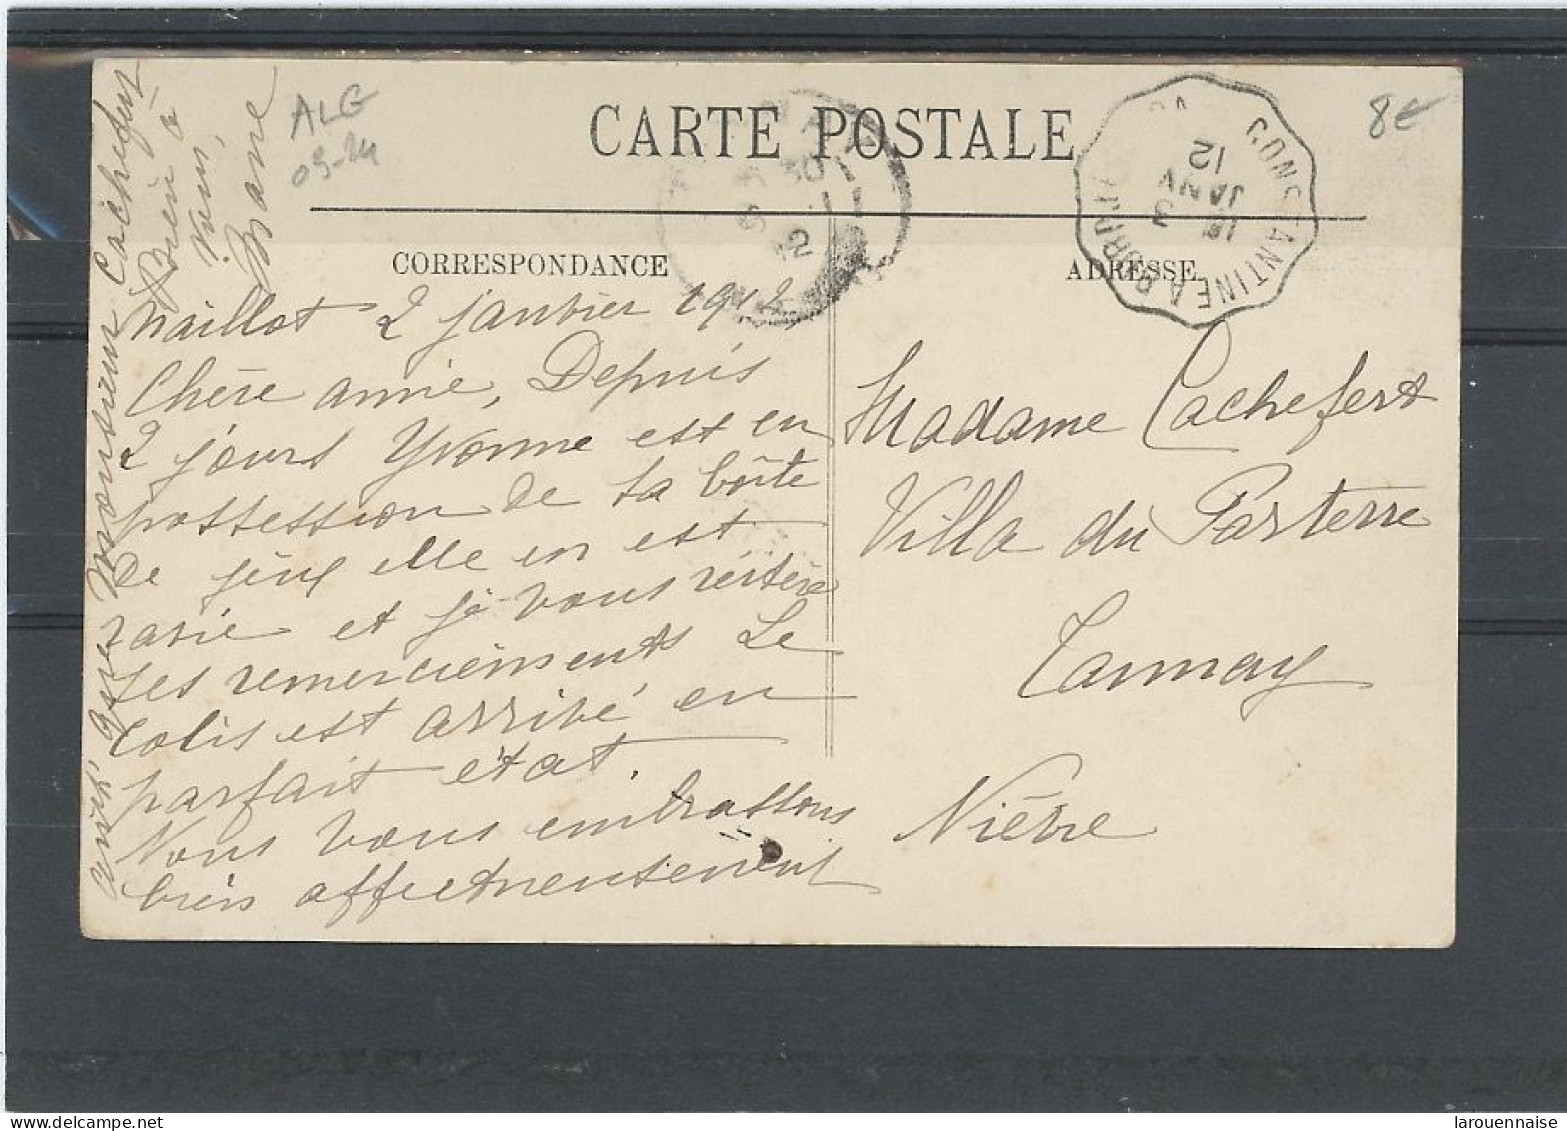 CARTE POSTALE
CORRESPONDANCE
ADRESSE
ALG
09-14
8€
CONSTANTINE A
1E
3
JANV
12
Maillot 2 janvier 1912
Chère amie, Depuis
2 jours Yvonne est en
possession de sa boîte
de jeux elle en est
ravie et je vous réitère
ses remerciements Le
colis est arrivé en
parfait état.
Nous vous embrassons
bien affectueusement
Monsieur Cachefert
Bien à
vous,
Madame Cachefert
Villa du Parterre
Tannay
Nièvre
larouennaise